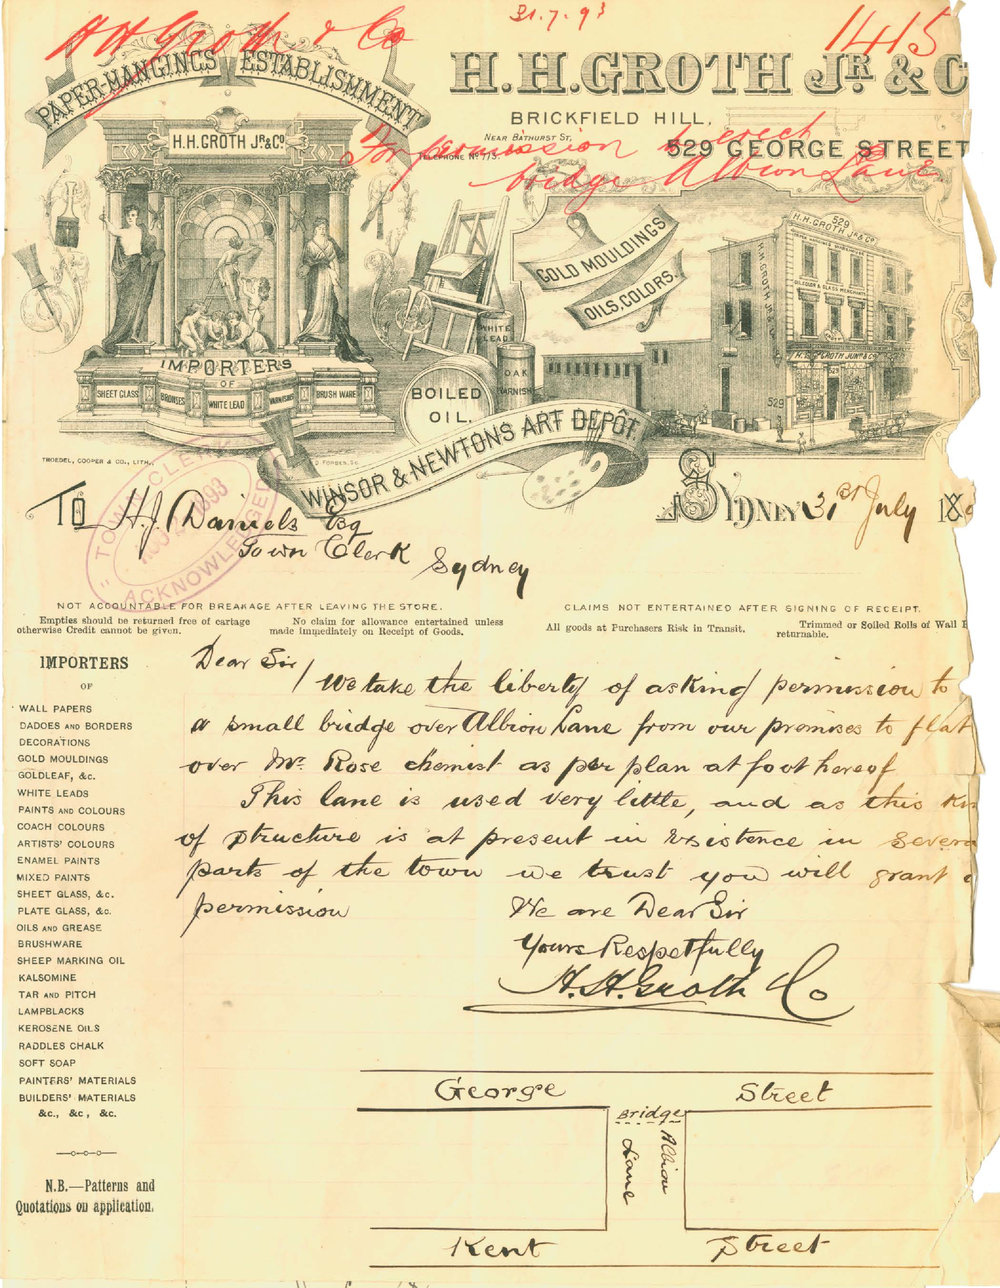 31.7.93
H H Groth & Co
1415
For permission to erect
bridge Albion Lane
PAPER-HANGINGS ESTABLISHMENT
H. H. GROTH JR. & CO
H.H. GROTH JR. & C
BRICKFIELD HILL,
NEAR BATHURST ST,
TELEPHONE No 775.
529 GEORGE STREET
GOLD MOULDINGS
OILS, COLORS.
529
H. H. GROTH JR. & CO.
OIL COLOR & GLASS MERCHANTS
H. H. GROTH JUNR. & CO.
529
529
WHITE LEAD
OAK VARNISH
BOILED OIL.
IMPORTERS
OF
SHEET GLASS
BRONZES
WHITE LEAD
VARNISHES
BRUSH WARE
WINSOR & NEWTONS ART DEPÔT.
TROEDEL, COOPER & CO., LITH.
D. FORBES, SC.
TOWN CLERK
1893
ACKNOWLEDGED
SYDNEY 31st July 189
TO H. J. Daniels Esq
Town Clerk
Sydney
NOT ACCOUNTABLE FOR BREAKAGE AFTER LEAVING THE STORE.
CLAIMS NOT ENTERTAINED AFTER SIGNING OF RECEIPT.
Empties should be returned free of cartage
otherwise Credit cannot be given.
No claim for allowance entertained unless
made immediately on Receipt of Goods.
All goods at Purchasers Risk in Transit.
Trimmed or Soiled Rolls of Wall
returnable.
Dear Sir/
We take the liberty of asking permission to
a small bridge over Albion Lane from our promises to flat
over Mr. Rose chemist as per plan at foot hereof
This lane is used very little, and as this Kin
of structure is at present in existence in severa
parts of the town we trust you will grant
permission
We are Dear Sir
Yours Respetfully
H. H. Groth Co
IMPORTERS
OF
WALL PAPERS
DADOES AND BORDERS
DECORATIONS
GOLD MOULDINGS
GOLDLEAF, &c.
WHITE LEADS
PAINTS AND COLOURS
COACH COLOURS
ARTISTS' COLOURS
ENAMEL PAINTS
MIXED PAINTS
SHEET GLASS, &c.
PLATE GLASS, &c.
OILS AND GREASE
BRUSHWARE
SHEEP MARKING OIL
KALSOMINE
TAR AND PITCH
LAMPBLACKS
KEROSENE OILS
RADDLES CHALK
SOFT SOAP
PAINTERS' MATERIALS
BUILDERS' MATERIALS
&c., &c., &c.
N.B.—Patterns and
Quotations on application.
George Street
Bridge
Albion
Lane
Kent Street